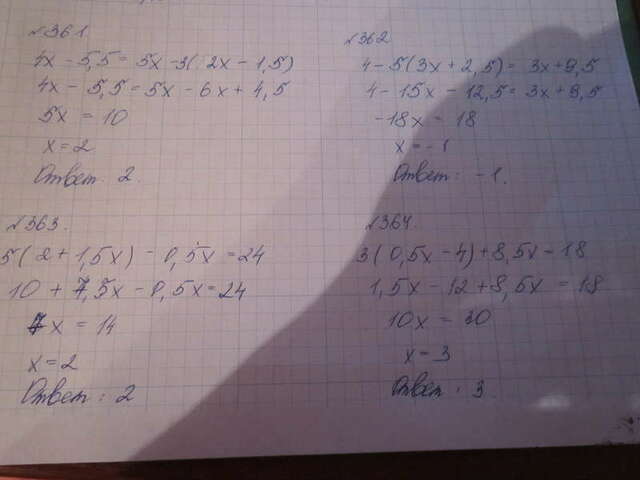 №361
4x - 5,5 = 5x - 3(2x - 1,5)
4x - 5,5 = 5x - 6x + 4,5
5x = 10
x = 2
Ответ. 2.
№362
4 - 5(3x + 2,5) = 3x + 9,5
4 - 15x - 12,5 = 3x + 9,5
-18x = 18
x = -1
Ответ: -1.
№363.
5(2 + 1,5x) - 0,5x = 24
10 + 7,5x - 0,5x = 24
7x = 14
x = 2
Ответ: 2
№364.
3(0,5x - 4) + 8,5x - 18
1,5x - 12 + 8,5x = 18
10x = 30
x = 3
Ответ: 3.